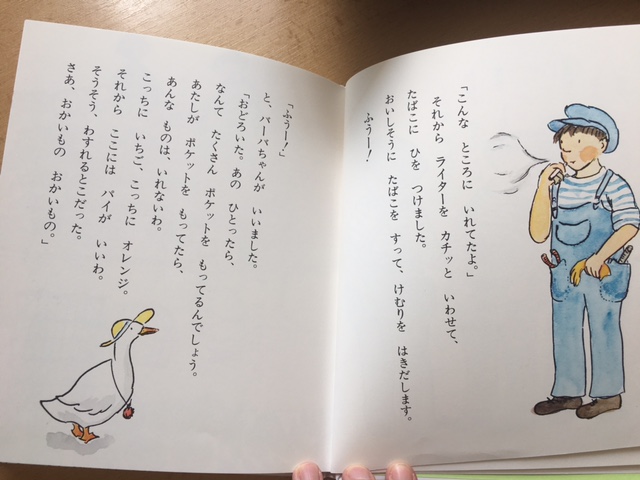 「こんな ところに いれてたよ。」
それから ライターを カチッと いわせて、
たばこに ひを つけました。
おいしそうに たばこを すって、けむりを はきだします。
ふうー！
「ふうー！」
と、バーバちゃんが いいました。
「おどろいた。あの ひとったら、
なんて たくさん ポケットを もってるんでしょう。
あたしが ポケットを もってたら、
あんな ものは、いれないわ。
こっちに いちご、こっちに オレンジ。
それから ここには パイが いいわ。
そうそう、わすれるとこだった。
さあ、おかいもの おかいもの。」